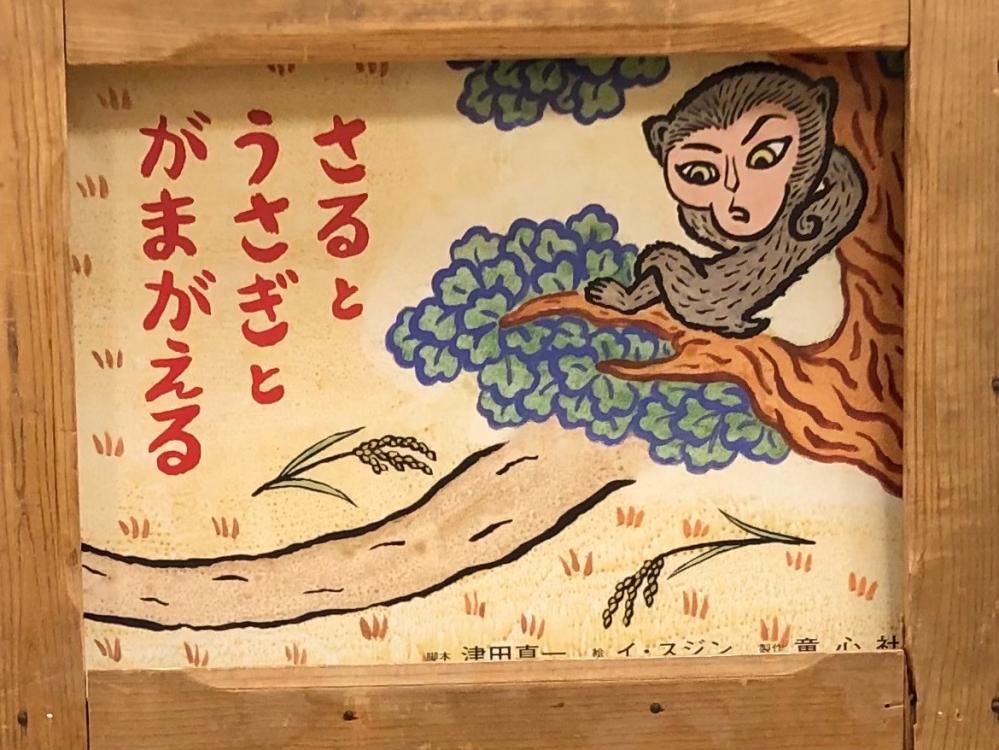 さると
うさぎと
がまがえる
脚本 津田真一 絵 イ・スジン 製作 童心社